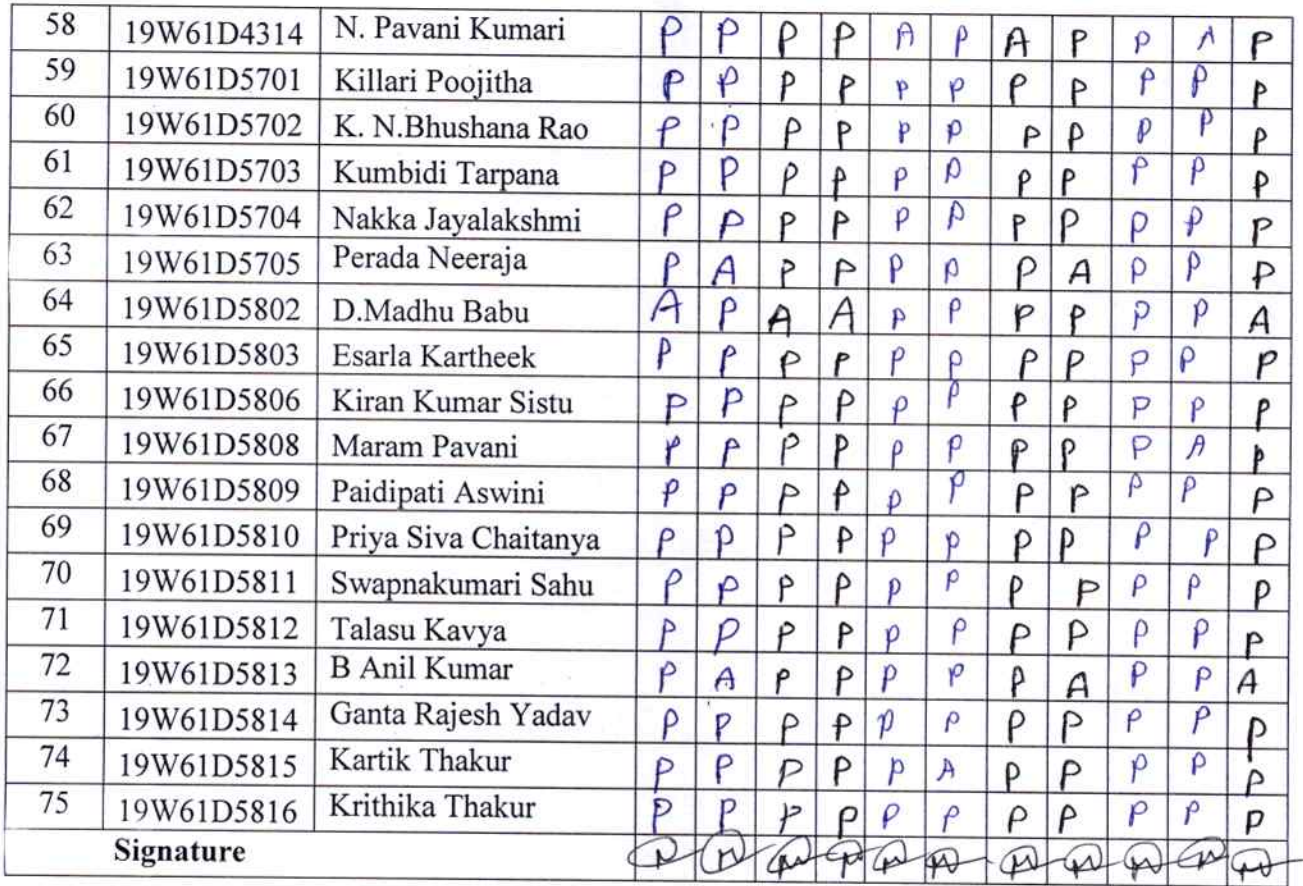 58 19W61D4314 N. Pavani Kumari P P P P A P A P P A P
59 19W61D5701 Killari Poojitha P P P P P P P P P P P
60 19W61D5702 K. N.Bhushana Rao P P P P P P P P P P P
61 19W61D5703 Kumbidi Tarpana P P P P P P P P P P P
62 19W61D5704 Nakka Jayalakshmi P P P P P P P P P P P
63 19W61D5705 Perada Neeraja P A P P P P P A P P P
64 19W61D5802 D.Madhu Babu A P A A P P P P P P A
65 19W61D5803 Esarla Kartheek P P P P P P P P P P P
66 19W61D5806 Kiran Kumar Sistu P P P P P P P P P P P
67 19W61D5808 Maram Pavani P P P P P P P P P A P
68 19W61D5809 Paidipati Aswini P P P P P P P P P P P
69 19W61D5810 Priya Siva Chaitanya P P P P P P P P P P P
70 19W61D5811 Swapnakumari Sahu P P P P P P P P P P P
71 19W61D5812 Talasu Kavya P P P P P P P P P P P
72 19W61D5813 B Anil Kumar P A P P P P P A P P A
73 19W61D5814 Ganta Rajesh Yadav P P P P P P P P P P P
74 19W61D5815 Kartik Thakur P P P P P A P P P P P
75 19W61D5816 Krithika Thakur P P P P P P P P P P P
Signature